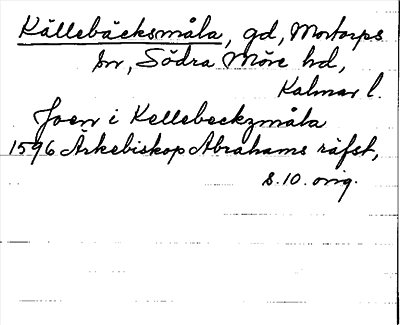 Källebäcksmåla, gd, Mortorps
sn, Södra Möre hd,
Kalmar l.
Joen i Kellebeckzmåla
1596 Ärkebiskop Abrahams räfst,
s. 10. orig.